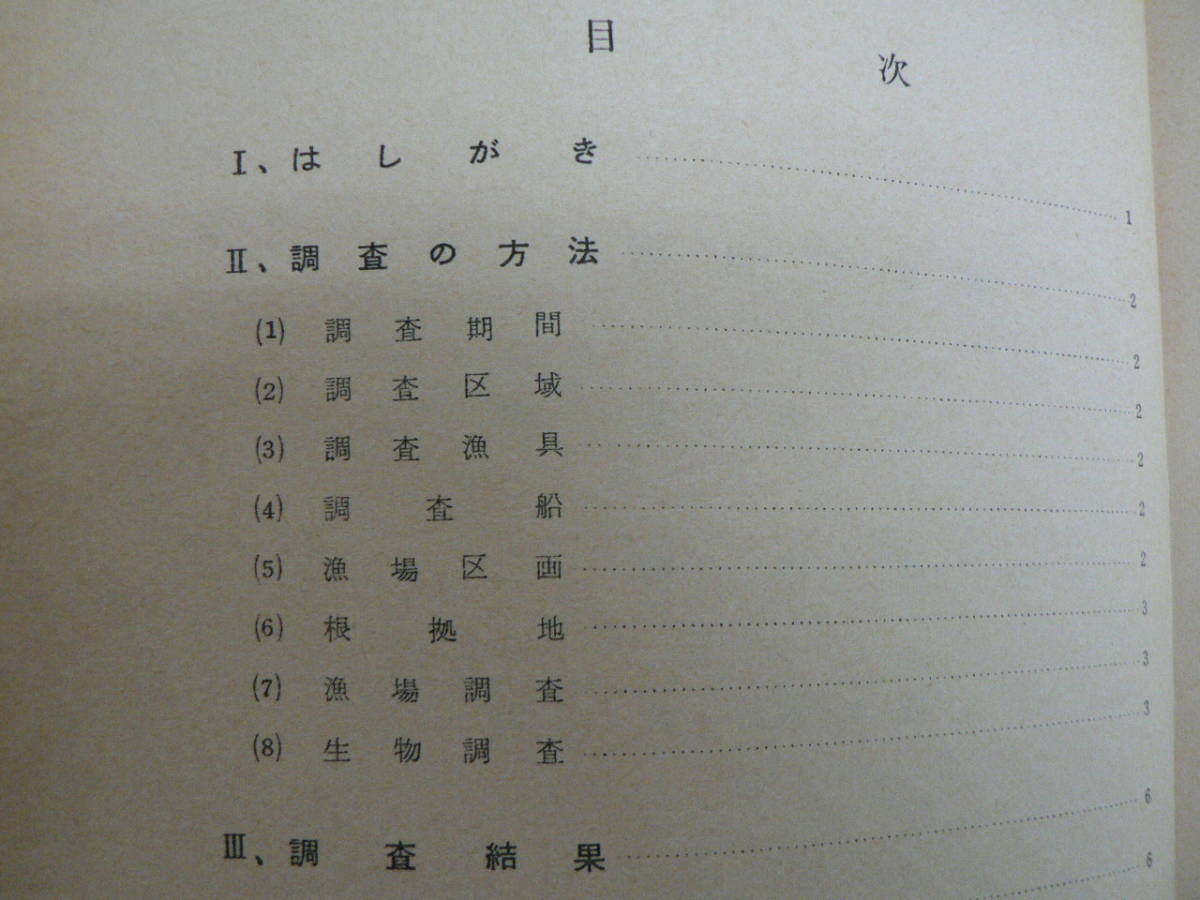 目次
Ⅰ、はしがき……………………1
Ⅱ、調査の方法……………………2
(1) 調査期間……………………2
(2) 調査区域……………………2
(3) 調査漁具……………………2
(4) 調査船……………………2
(5) 漁場区画……………………2
(6) 根拠地……………………3
(7) 漁場調査……………………3
(8) 生物調査……………………3
Ⅲ、調査結果……………………6
6